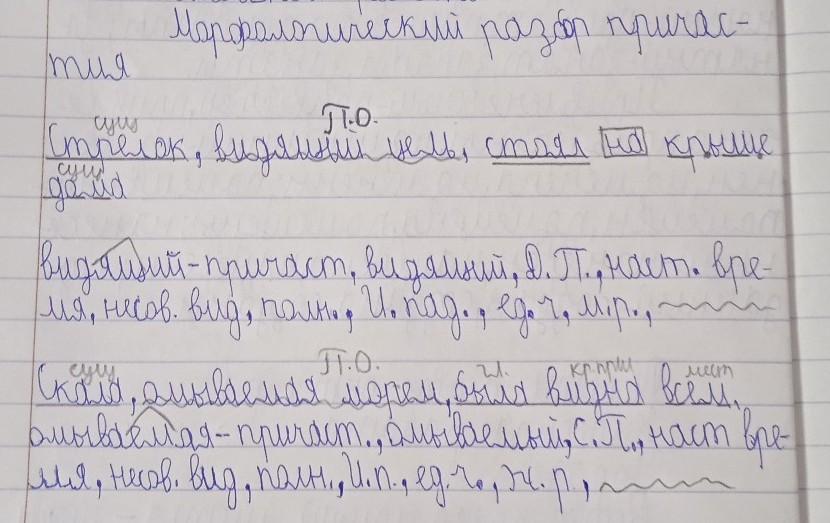 Морфологический разбор причас-
тия
сущ П.О.
Стрелок, видящий цель, стоял на крыше
сущ
дома
видящий-причаст, видящий, Д.П., наст. вре-
мя, несов. вид, полн., И.пад., ед.ч, м.р.,
сущ П.О. гл. кр.прил мест
Скала, омываемая морем, была видна всем.
омываемая-причаст., омываемый, С.П., наст вре-
мя, несов. вид, полн., И.п., ед.ч., ж.р.,